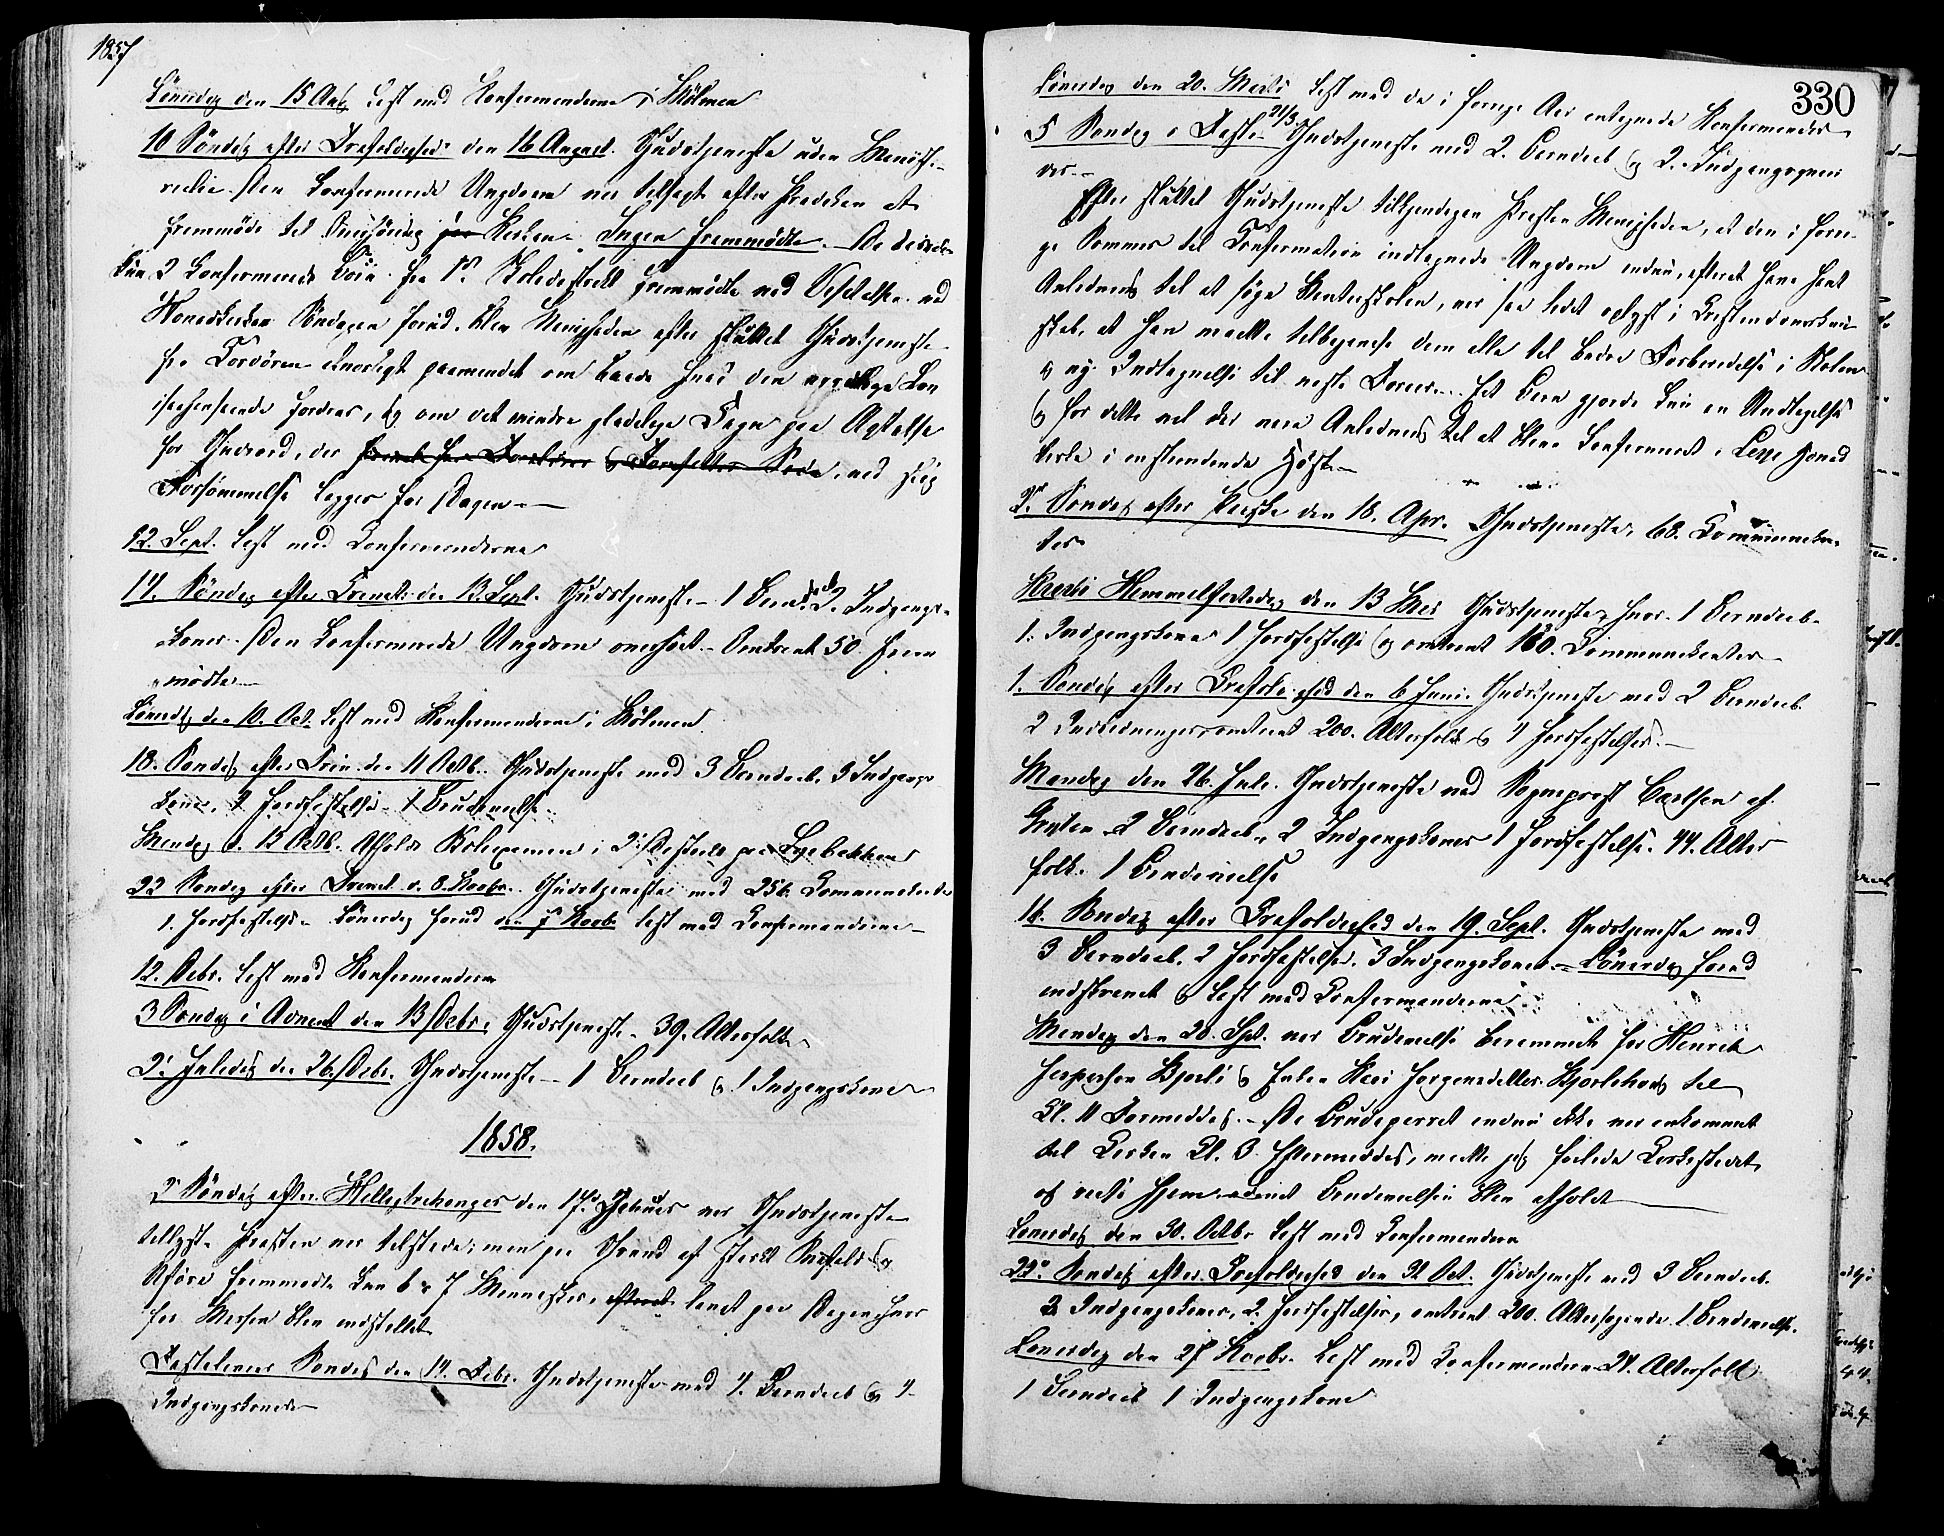 1857
Lönerdag den 15 Aug. Læst med Konfirmanderne i Skolmen
10 Söndag efter Trefoldighed den 16 August. Gudstjeneste uden
Den Konfirmerede Ungdom var tilsagt efter Prædiken at
fremmöde til Overhöring Kirken. Ingen fremmødte. De
kun 2 Konfirmerede Börn fra 1ste fremmödte ved
Söndagen forud. Blev Menigheden efter sluttet Gudstjeneste
fra Cordören alvorligt paamindet om baade hvad den
fordrer, og om det mindre glædelige Tegn paa Agtelse
for Guds ord, der ved slig
Forsömmelse lægges for Dagen.
12. Sept. Læst med Confirmanderne
14. Söndag efter Trenit. den 13. Sept. Gudstjeneste. 1 Barnedaab 2. Indgangs-
koner. Den Confirmerede Ungdom overhört. Omtrent 50 frem
mödte.
Lönerdag den 10. Oct. Læst med Konfirmanderne i Skolmen
18. Söndag efter Trin. den 11 Octb. Gudstjeneste med 3 Barnedaab. 3 Indgangs-
koner. Jordfæstelse 1 Brudevielse
Mandag d. 12 Octb. Afholdt Skoleexamen i paa
22 Söndag efter Trenit. d. 8. Novbr. Gudstjeneste med 256. Communicanter
1. Jordfæstelse. Lönerdag forud den 7 Novb. læst med Confirmanderne
12. Debr. Læst med Konfirmanderne
3 Söndag i Advent den 13 Debr. Gudstjeneste. 39. Altersfolk
2. Juledag den 26. Debr. Gudstjeneste 1 Barnedaab og 1 Indgangskone
1858.
2 Söndag efter Helligtrekonger den 17. Januar var Gudstjeneste
tillyst. Præsten var tilstede; men paa Grund af stærkt Snefald og
Uföre fremmödte kun 6 a 7 Mennesker, langt paa Dagen, hvor
for Messen blev indstillet
Fastelavns Söndag den 14. Febr. Gudstjeneste med 4. Barnedaab og 4
Indgangskoner
330
Lönerdag den 20. Marts læst med de i forrige Aar antegnede Konfirmander
5 Söndag i Faste 21/3. Gudstjeneste med 2. Barndaab og 2. Indgangskoner
Efter sluttet Gudstjeneste tilkjendegav Præsten Menigheden, at den i forri-
ge Sommer til Confirmation indtagnede Ungdom endnu, efterat have havt
Anledning til at söge Vinterskolen, var saa lidet oplyst i Christendomskund-
skab, at han maatte tilbagevise dem alle til bedre Forberedelse i Skolen
og ny Indtagnelse til næste Foraar. Et Barn gjorde kun en Undtagelse
og for dette vil der være Anledning til at blive Confirmeret i Lesje Hoved
kirke i instundende Höst.
2. Söndag efter Paaske den 18. Apr. Gudstjeneste, 68. Communican-
ter
Kristi Himmelfartsdag den 13 Mai Gudstjeneste, hvor 1 Barndaab.
1. Indgangskone 1 Jordfæstelse og omtrent 160. Communicanter
1. Söndag efter Trefoldighed den 6 Juni. Gudstjeneste med 2 Barndaab.
2 Indledninger omtrent 200. Altersfolk og 4 Jordfæstelser.
Mandag den 26. Juli. Gudstjeneste ved Sogneprest Carlsen af
2 Barndaab, 2 Indgangskoner 1 Jordfæstelse. 44. Alters
folk. 1 Brudevielse
16. Söndag efter Trefoldighed den 19. Sept. Gudstjeneste med
3 Barndaab. 2 Jordfæstelser. 3 Indgangskoner. Lönerdag forud
indskrevet og læst med Confirmanderne.
Mandag den 20. Spt. var Brudevielse berammet for Henrik
til
Kl. 11 Formiddag. Da Brudeparret endnu ikke var ankommet
til Kirken Kl. 3. Eftermiddag, maatte jeg forlade Kirkestedet
og reise hjem, uden at Brudevielsen blev afholdt
Lönerdag den 30. Octbr. læst med Confirmanderne
22. Söndag efter Trefoldighed den 31 Oct. Gudstjeneste med 3 Barndaab.
2 Indgangskoner, 2. Jordfæstelser, omtrent 200. Altersögende. 1 Brudevielse.
Lönerdag den 27 Novbr. Læst med Confirmanderne 24. Altersfolk
1 Barndaab 1 Indgangskone